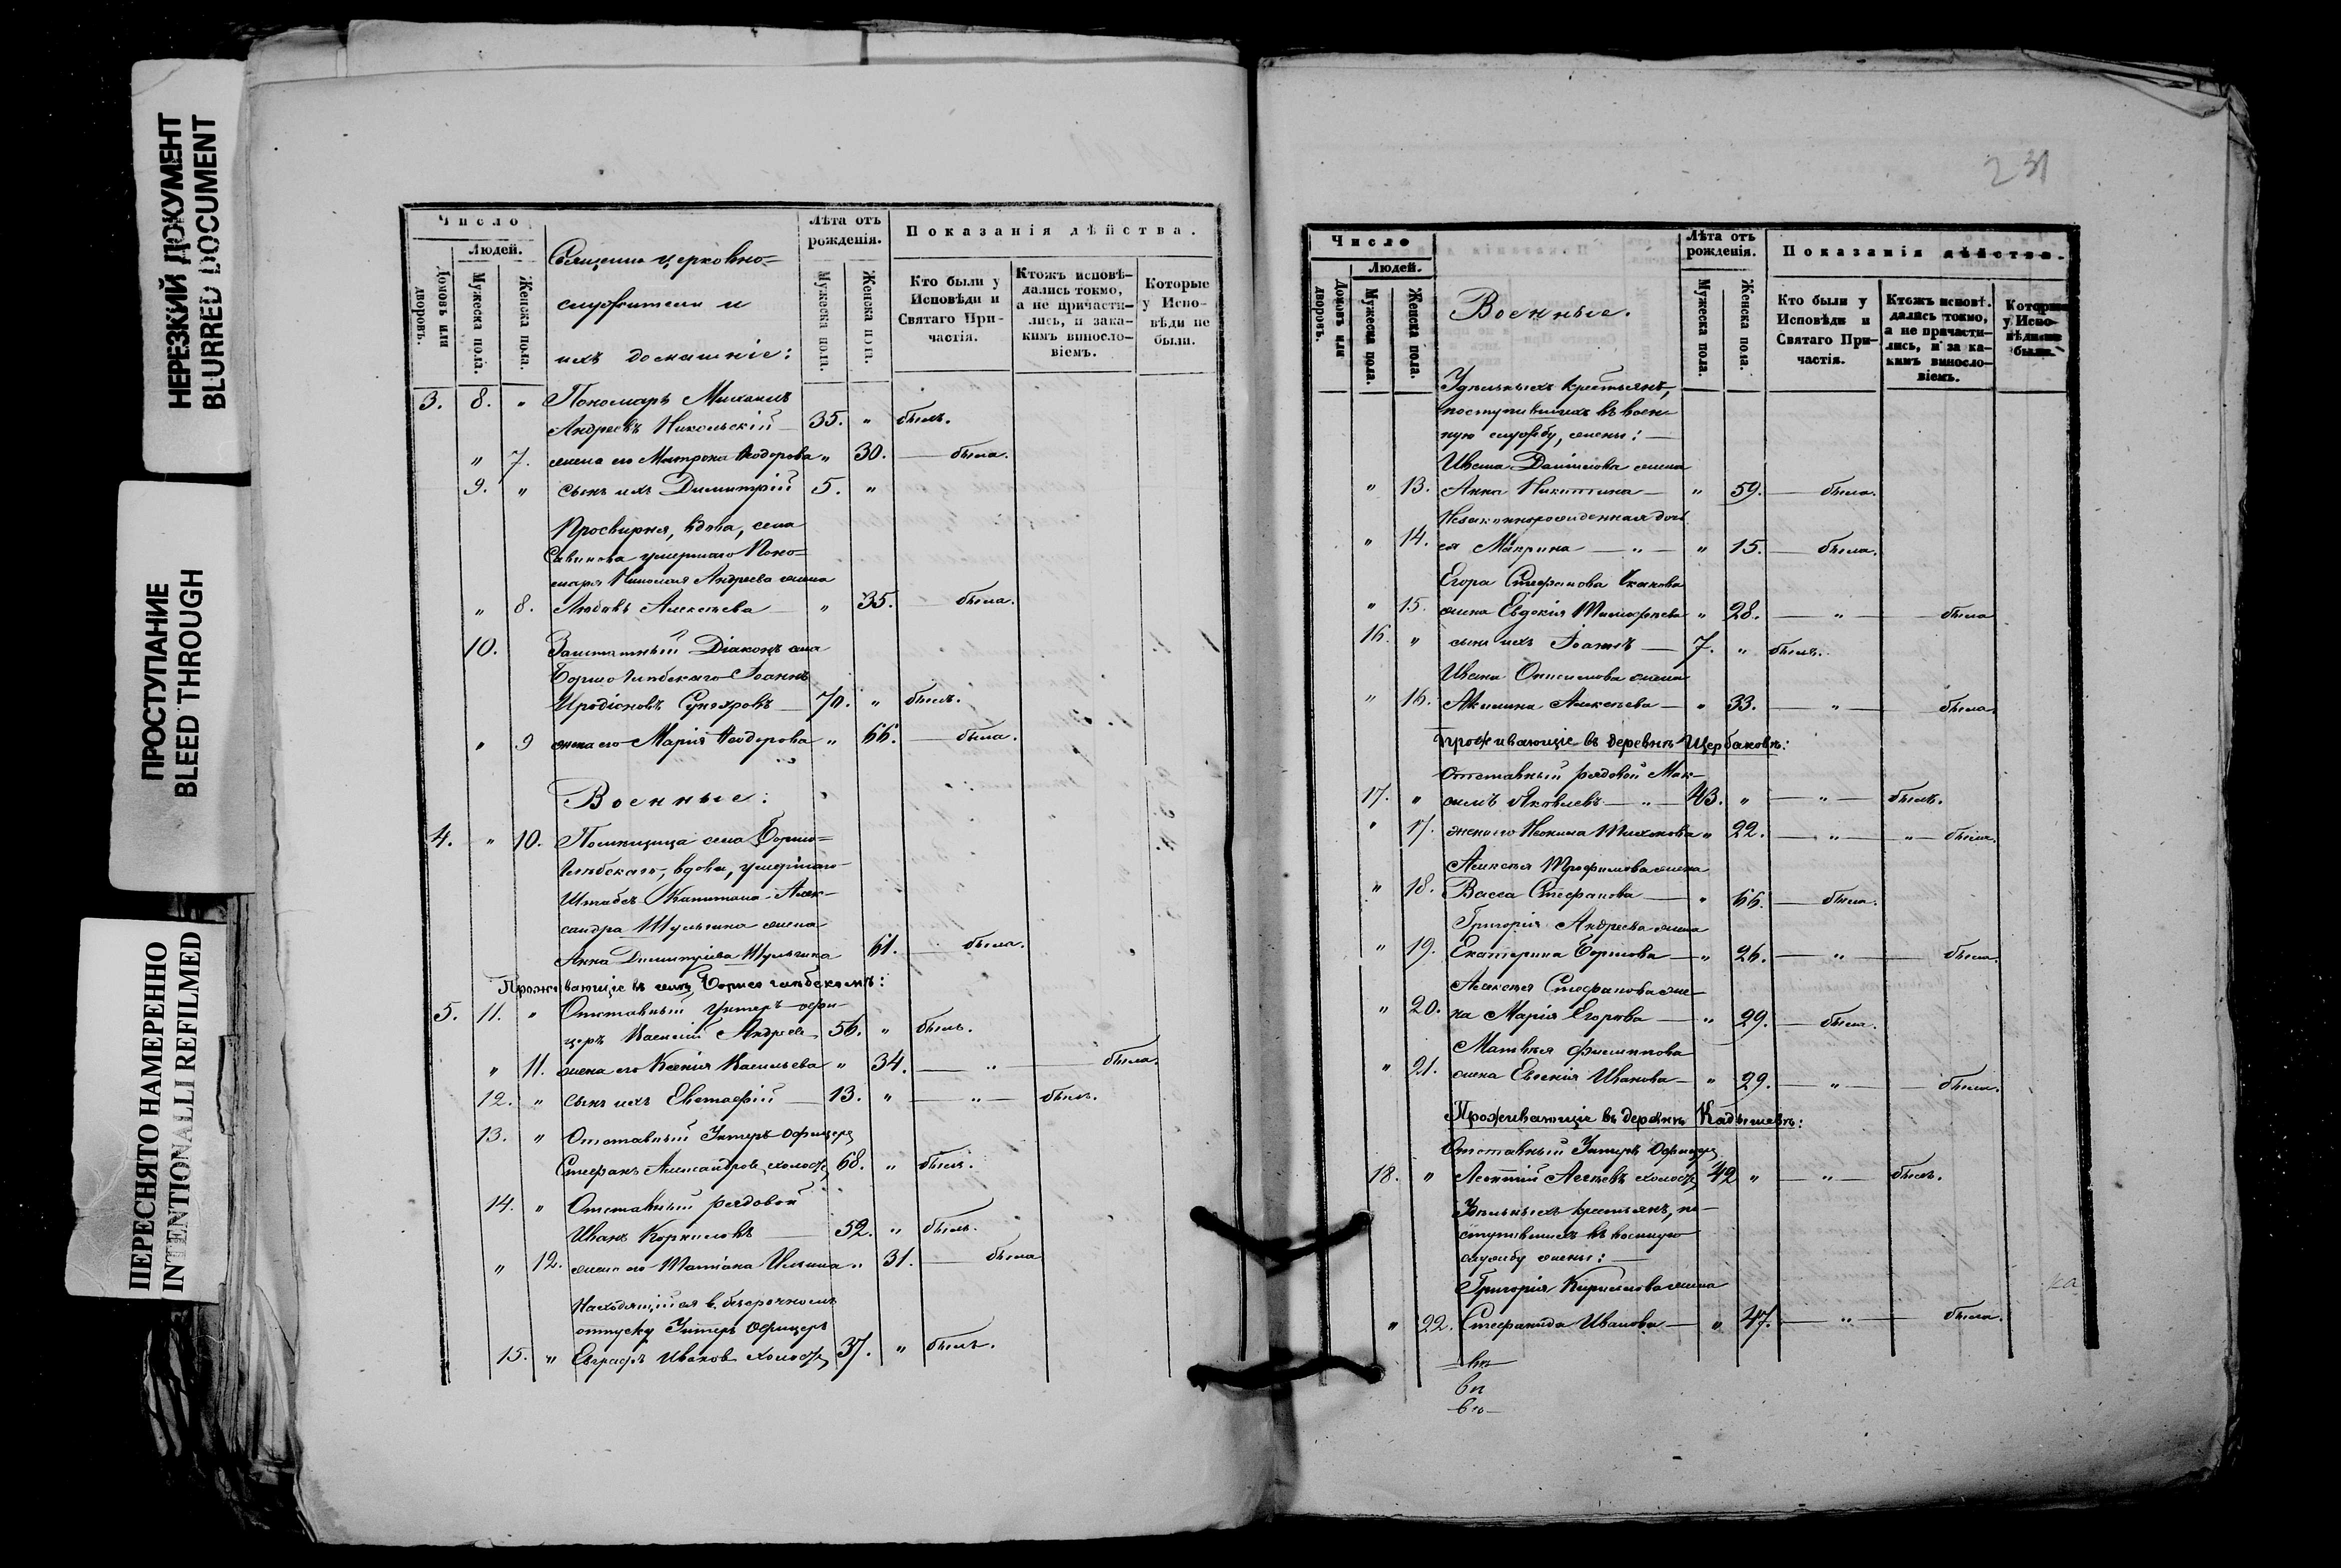 НЕРЕЗКИЙ ДОКУМЕНТ
BLURRED DOCUMENT
ПРОСТУПАНИЕ
BLEED THROUGH
ПЕРЕСНЯТО НАМЕРЕННО
INTENTIONALLI REFILMED
Число
Людей.
Домовъ или дворовъ.
Мужеска пола.
Женска пола.
Священно церковно=
служители и
ихъ домашніе:
Лѣта отъ рожденія.
Мужеска пола.
Женска пола.
Показанія дѣйства.
Кто были у Исповѣди и Святаго Причастія.
Ктожъ исповѣ-
дались токмо,
а не причасти-
лись, и зака-
кимъ винослo-
віемъ.
Которые
у Испо-
вѣди не
были.
3. 8. " Пономарь Михаилъ
Андреевъ Никольскій — 35. " былъ.
" 7. жена его Матрона Ѳеодорова " 30. — была.
9. " сынъ ихъ Димитрій 5. "
Просвирня, вдова, села
умершаго Поно=
маря Николая Андреева жена
" 8. Любовь Алексѣева — " 35. — была.
10. Заштатный Діаконъ села
Борисоглѣбскаго Іоаннъ
Иродіоновъ — 70. " былъ.
" 9 жена его Марія Ѳеодорова " 66. — была.
Военные:
4. " 10. Помѣщица села Борисо=
глѣбскаго, вдова, умершаго
Штабсъ-Капитана Алек-
сандра Шульгина жена
Анна Димитріева Шульгина 61. — была.
Проживающіе въ селѣ Борисоглѣбскомъ:
5. 11. " Отставный Унтеръ-офи-
церъ Василій Андреевъ 56. " былъ.
" 11. жена его Ксенія Васильева " 34. — " — была.
12. " сынъ ихъ Евстафій — 13. " — " — былъ.
13. " Отставный Унтеръ Офицеръ
Стефанъ Александровъ, холостъ, 68. " былъ.
14. " Отставный рядовой
Иванъ Корниловъ — 52. " былъ.
" 12. жена его Татіана Ильина " 31. — была
Находящійся въ безсрочномъ
отпуску Унтеръ Офицеръ
15. " Евграфъ Ивановъ холостъ, 37. " былъ.
231
Число
Людей.
Домовъ или дворовъ.
Мужеска пола.
Женска пола.
Военные.
Лѣта отъ рожденія.
Мужеска пола.
Женска пола.
Показанія дѣйства.
Кто были у Исповѣди и Святаго Причастія.
Ктожъ исповѣ-
дались токмо,
а не причасти-
лись, и за ка-
кимъ винослo-
віемъ.
Которые
у Испо-
вѣди не
были.
Удѣльныхъ крестьянъ,
поступившихъ въ воен-
ную службу, жены: —
Ивана Данилова жена
" 13. Анна Никитина — " 59. — была.
Незаконнорожденная дочь
" 14. ея Маврина — " — " 15. — была.
Егора Стефанова
" 15. жена Евдокія Тимофѣева " 28. — " — была
16. " сынъ ихъ Іоаннъ — 7. " былъ.
Ивана Онисимова жена
" 16. Акилина Алексѣева — " 33. — " — была.
Проживающіе въ деревнѣ Щербаковѣ:
Отставный рядовой Мак-
17. " симъ Яковлевъ — " — 43. " — " — былъ.
" 17. жена его Неонила Тихонова " 22. — " — " — была.
Алексѣя Трофимова жена
" 18. Васса Стефанова — " 66. — была.
Григорія Андреева жена
" 19. Екатерина Борисова — " 26. — " — была.
Алексѣя Стефанова же-
" 20. на Марія Егорова — " 29. — была.
Матвѣя Филиппова
" 21. жена Евгенія Иванова — " 29. — " — была.
Проживающіе въ деревнѣ Кадышевѣ:
Отставный Унтеръ Офицеръ
18. " Леонтій холостъ, 42 " — " — былъ.
Удѣльныхъ крестьянъ, по-
ступившихъ въ военную
службу жены: —
Григорія Кириллова жена
" 22. Стефанида Иванова — " 47. — " — была.